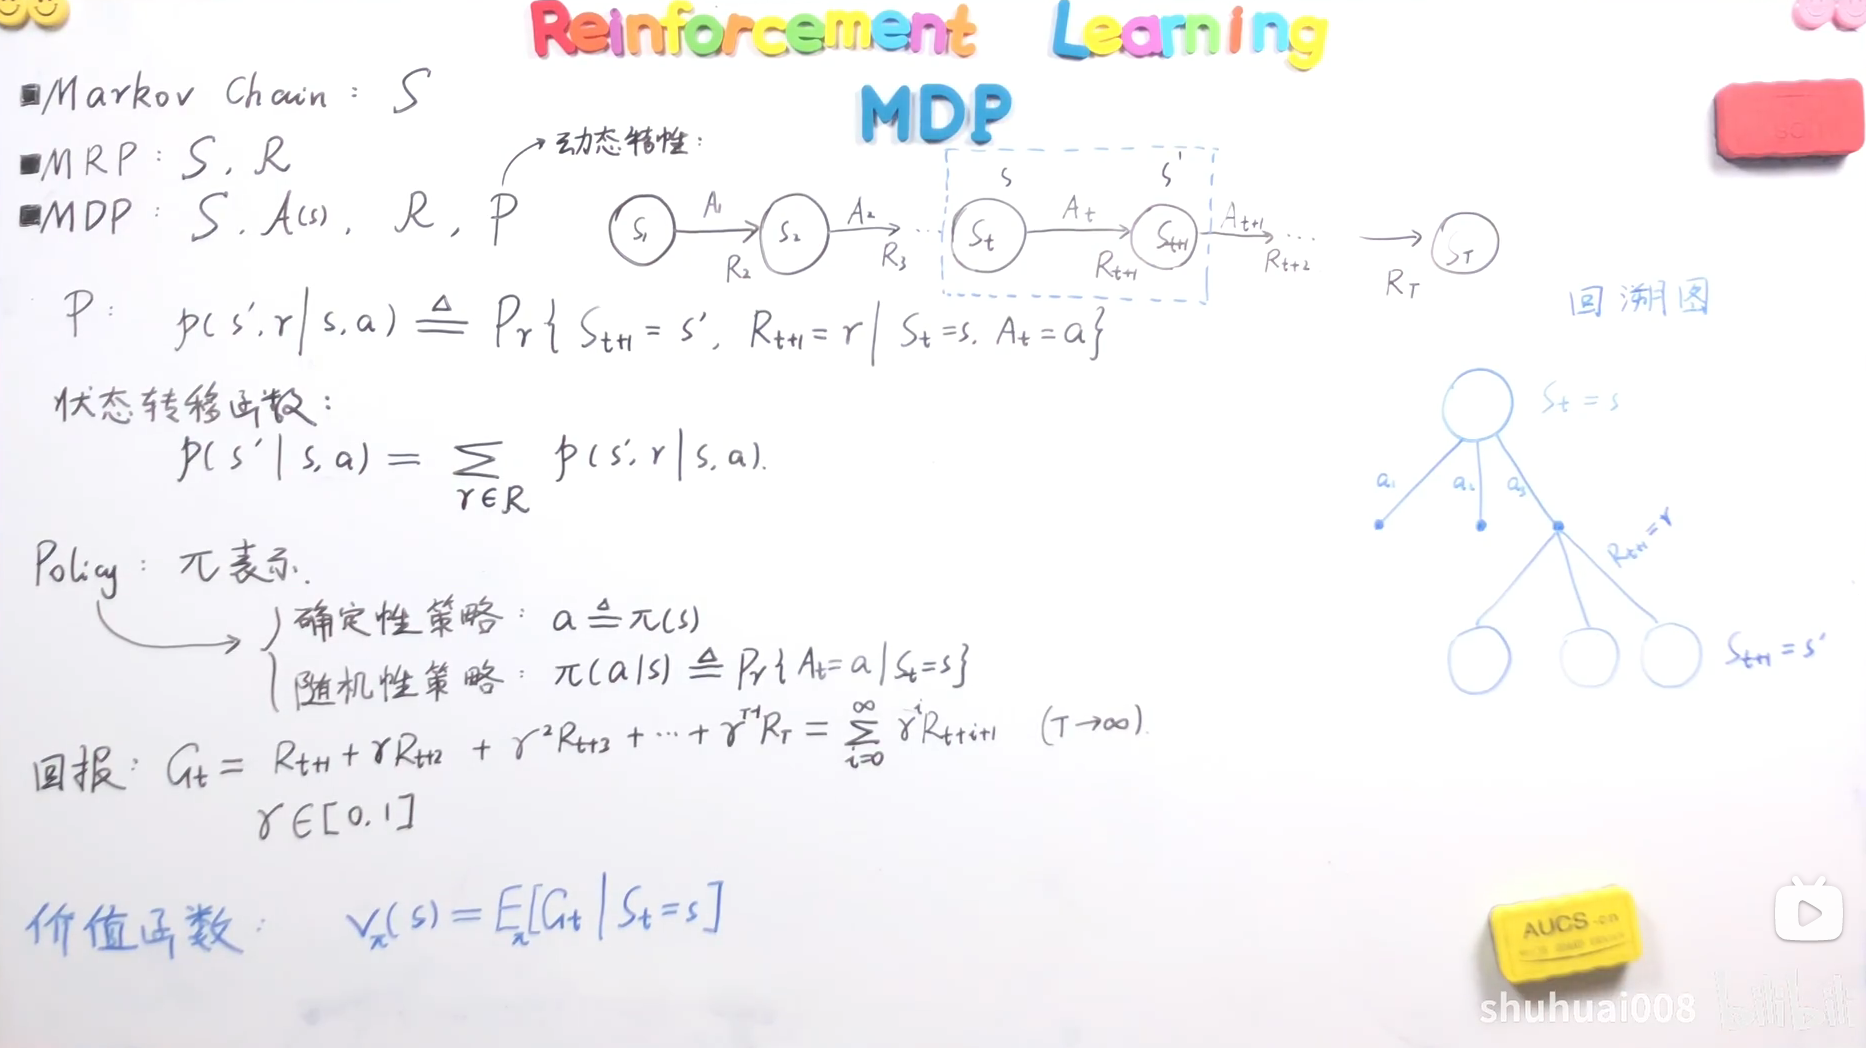 Reinforcement Learning
MDP
■Markov Chain: S
■MRP: S, R
■MDP: S, A(s), R, P → 动态特性:
S₁ A₁ R₂ S₂ A₂ R₃ ··· s S_t A_t R_{t+1} s' S_{t+1} A_{t+1} R_{t+2} ··· R_T S_T
P: p(s',r|s,a) ≜ Pr{S_{t+1}=s', R_{t+1}=r | S_t=s, A_t=a}
状态转移函数:
p(s'|s,a) = Σ_{r∈R} p(s',r|s,a).
Policy: π表示.
确定性策略: a ≜ π(s)
随机性策略: π(a|s) ≜ Pr{A_t=a|S_t=s}
回报: G_t = R_{t+1} + γR_{t+2} + γ²R_{t+3} + ··· + γ^{T-1}R_T = Σ_{i=0}^{∞} γ^i R_{t+i+1} (T→∞).
γ∈[0,1]
价值函数: V_π(s) = E_π[G_t | S_t=s]
回溯图
S_t = s
a₁ a₂ a₃
R_{t+1}=r
S_{t+1} = s'
AUCS-cn
shuhuai008 bilibili